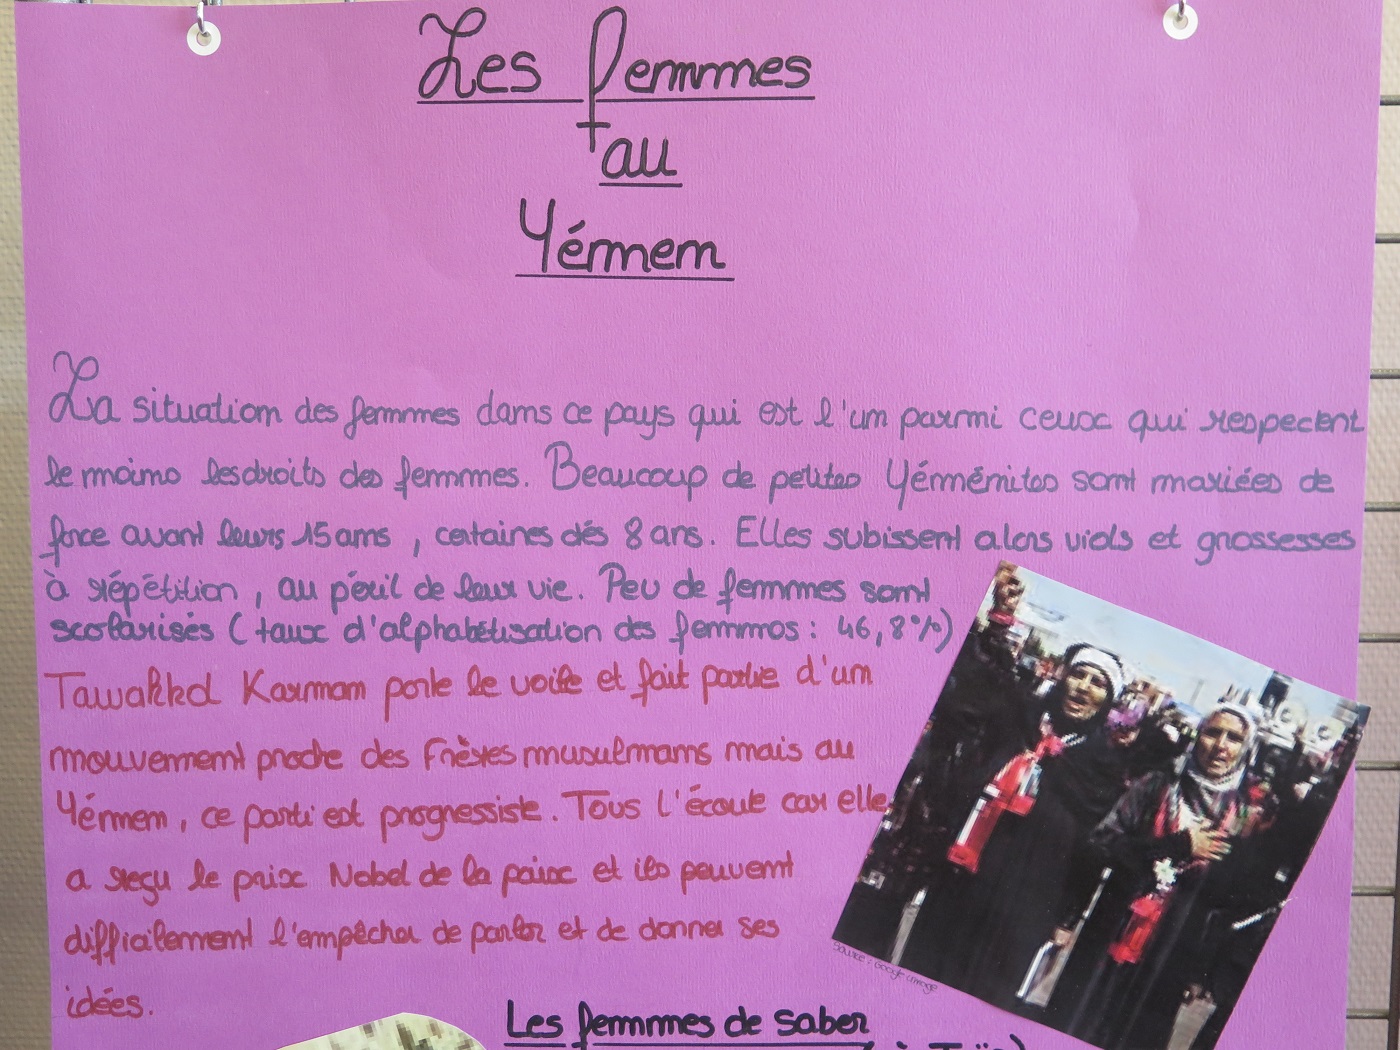 Les femmes
au
Yémen
La situation des femmes dans ce pays qui est l'un parmi ceux qui respectent
le moins les droits des femmes. Beaucoup de petites Yéménites sont mariées de
force avant leurs 15 ans, certaines dés 8 ans. Elles subissent alors viols et grossesses
à répétition, au péril de leur vie. Peu de femmes sont
scolarisés (taux d'alphabétisation des femmes : 46,8%)
Tawakkol Karman porte le voile et fait partie d'un
mouvement proche des Frères musulmans mais au
Yémen, ce parti est progressiste. Tous l'écoute car elle
a reçu le prix Nobel de la paix et ils peuvent
difficilement l'empêcher de parler et de donner ses
idées.
Source : Google image
Les femmes de Saber